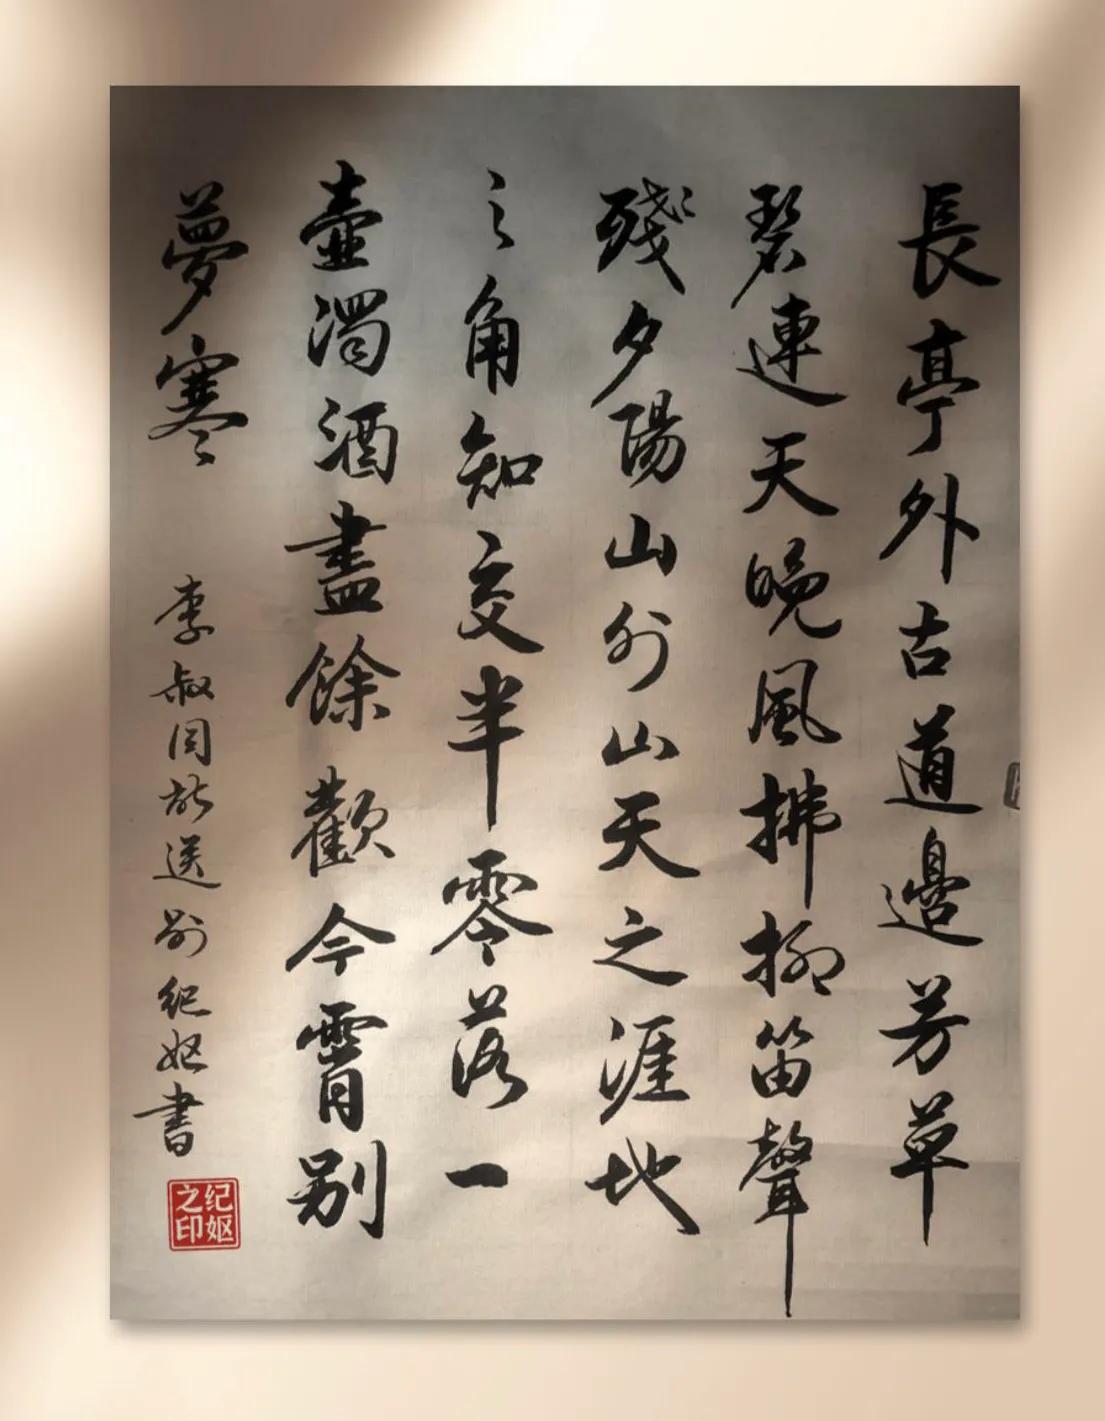 長亭外古道邊芳草
碧連天晚風拂柳笛聲
殘夕陽山外山天之涯地
之角知交半零落一
壺濁酒盡餘歡今霄别
夢寒
李叔同送别紀妪書
纪妪之印